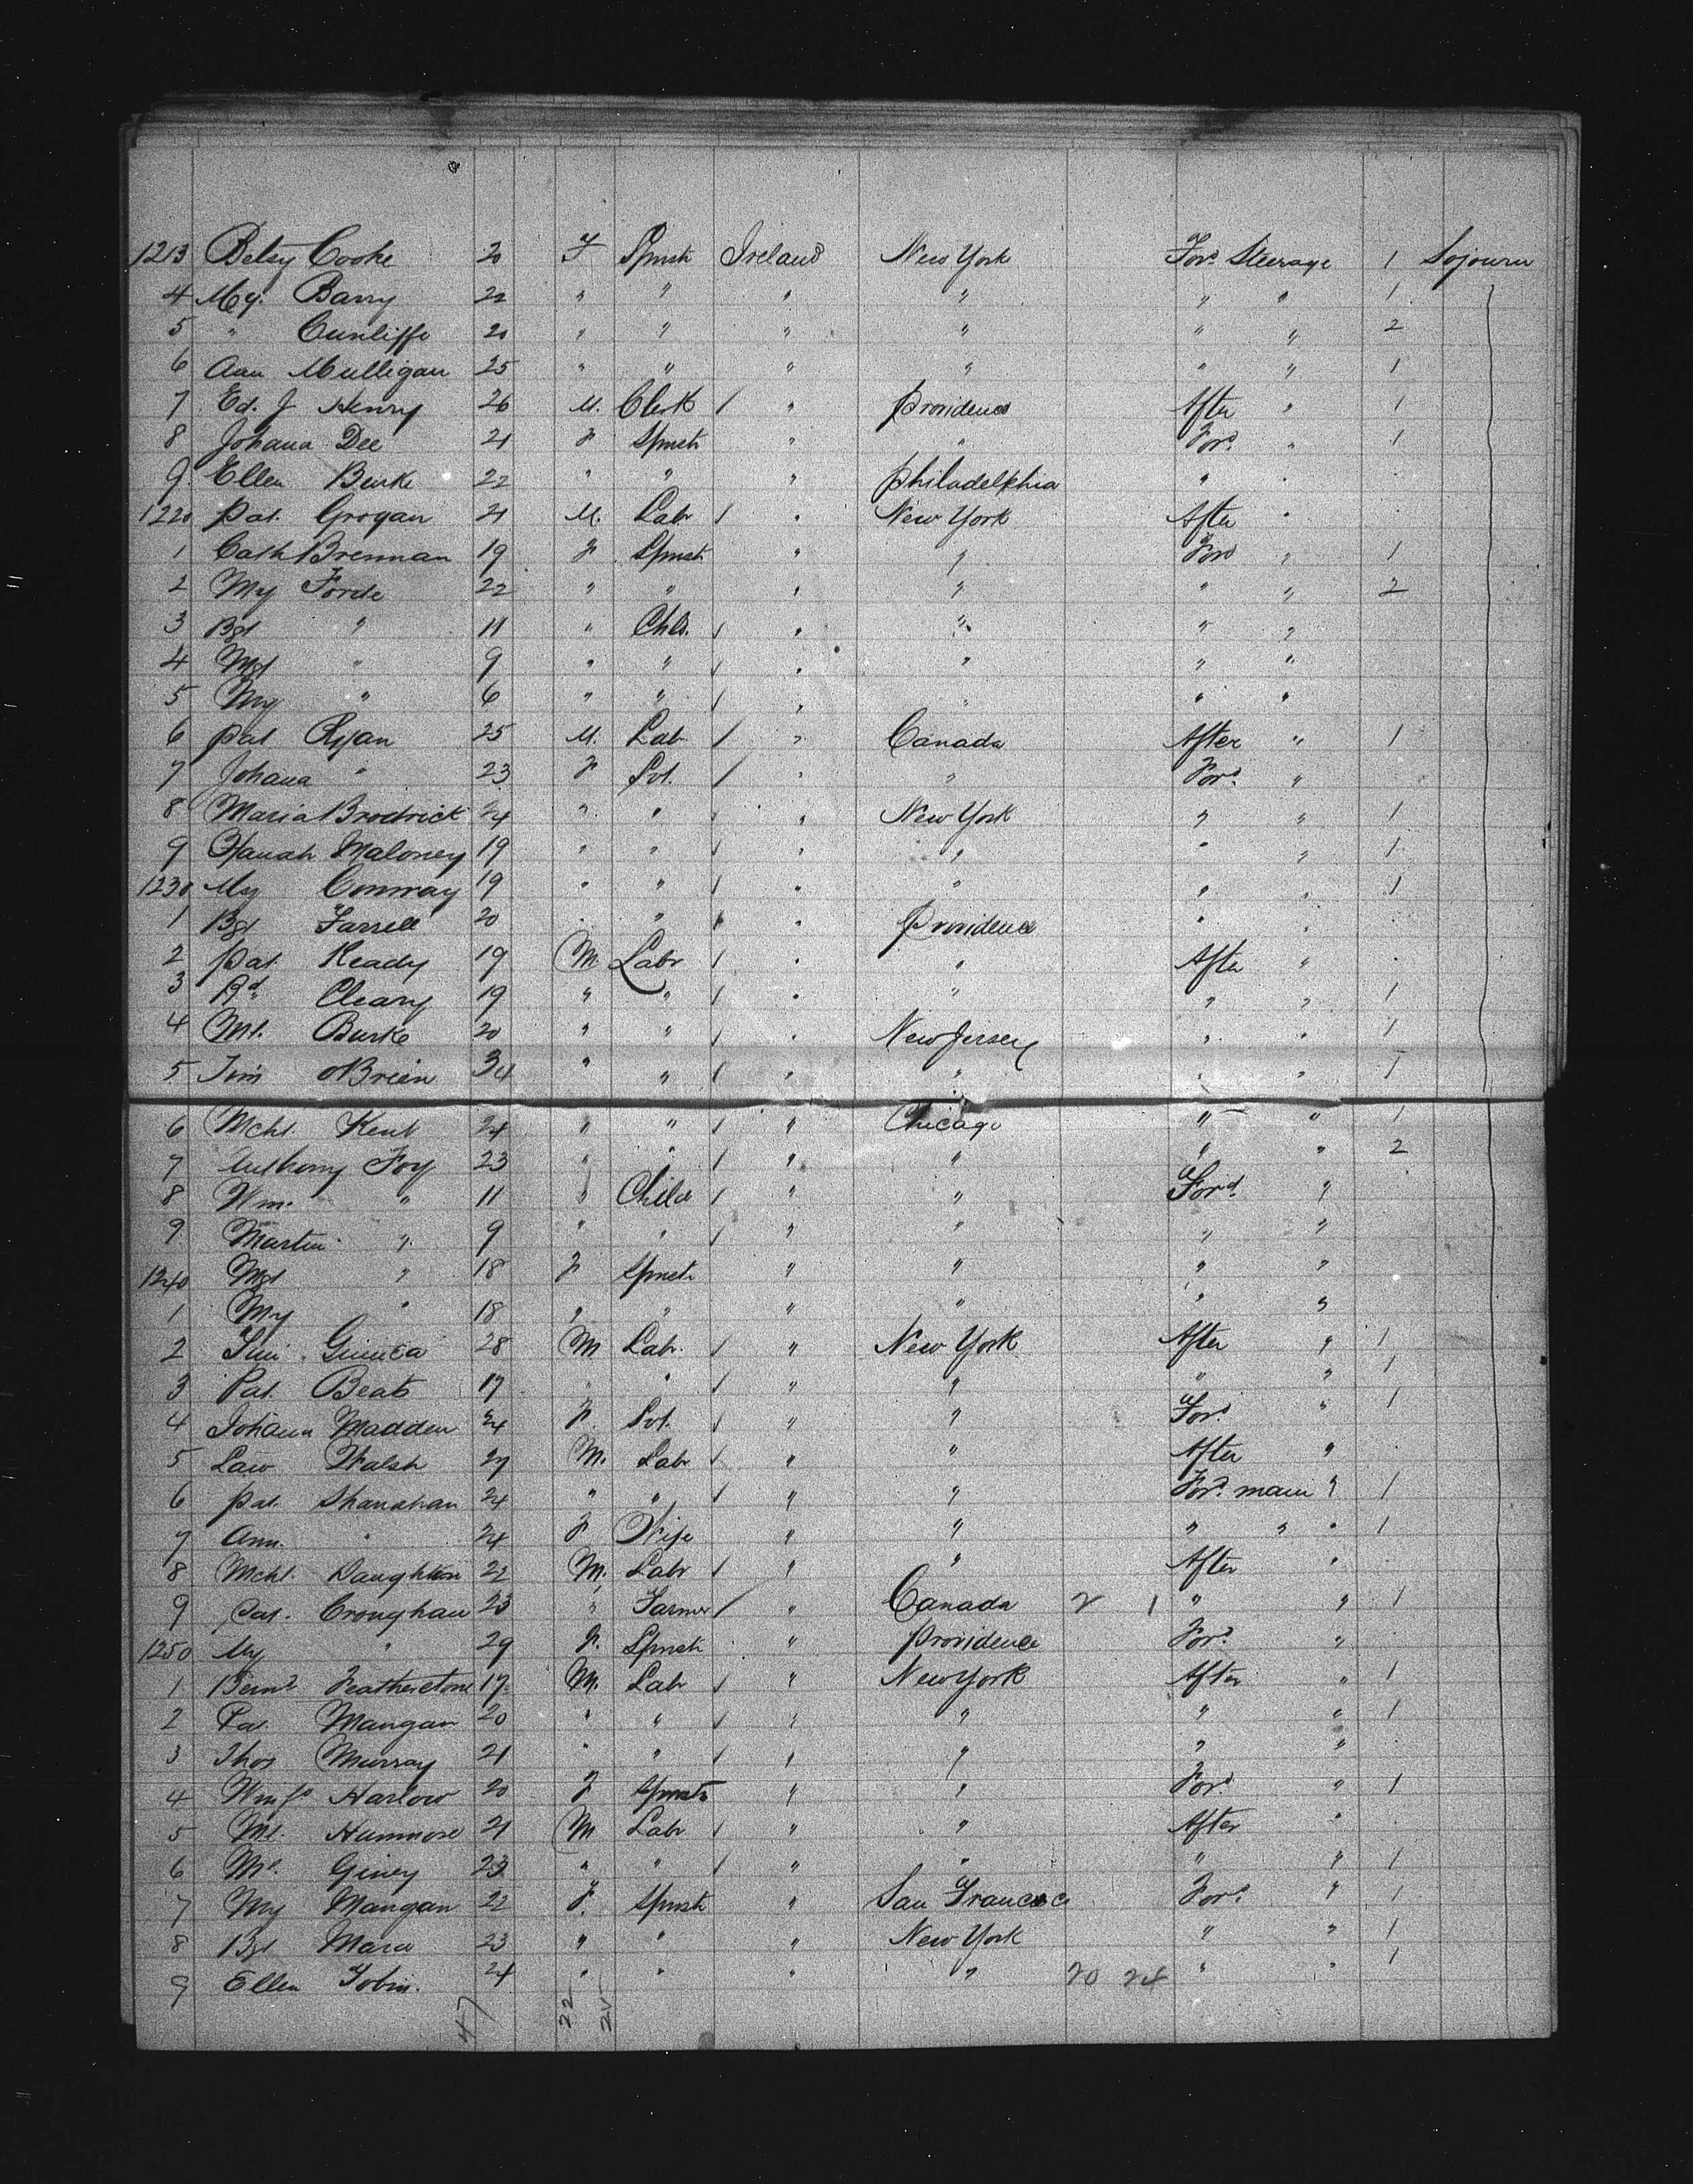 1213 Betsy Cooke 20 F Spinstr Ireland New York For'd Steerage 1 Sojourn
4 My. Barry 22 " " " " " " 1
5 " Cunliffe 20 " " " " " " 2
6 Ann Mulligan 25 " " " " " " 1
7 Ed. J Henry 26 M. Clerk / " Providence After " 1
8 Johana Dee 21 F Spinstr " " For'd " 1
9 Ellen Burke 22 " " " Philadelphia " "
1220 Pat. Grogan 21 M. Labr / " New York After "
1 Cath Brennan 19 F Spinstr " " For'd " 1
2 My Forde 22 " " " " " " 2
3 Bgt " 11 " Chld. / " " " "
4 Mgt " 9 " " / " " " "
5 My " 6 " " / " " " "
6 Pat Ryan 25 M. Lab / " Canada After " 1
7 Johana " 23 F Svt. / " " For'd. "
8 Maria Brodrick 24 " " / " New York " " 1
9 Hanah Maloney 19 " " / " " " " 1
1230 My Conway 19 " " / " " " " 1
1 Bgt Farrell 20 " " / " Providence " "
2 Pat. Keady 19 M Labr / " " After "
3 Rd. Cleary 19 " " / " " " " 1
4 Ml. Burke 20 " " / " New Jersey " " 1
5 Tim OBrien 34 " " / " " " " 1
6 Mchl. Kent 24 " " / " Chicago " " 1
7 Anthony Foy 23 " " / " " " " 2
8 Wm. " 11 " Child / " " Ford. "
9 Martin " 9 " " / " " " "
1240 Mgt " 18 F Spinstr " " " "
1 My " 18 " " " " " "
2 Tim 28 M Labr. / " New York After " 1
3 Pat. Beats 17 " " / " " " " 1
4 Johana Madden 24 F Svt. / " " For'd. " 1
5 Law Walsh 27 M. Labr / " " After "
6 Pat. Shanahan 24 " " / " " For'd. main " 1
7 Ann. " 24 F Wife " " " " " 1
8 Mchl. Daughton 22 M. Labr / " " After "
9 Pat. Croughan 23 " Farmer / " Canada 2 1 " " 1
1250 My " 29 F. Spinstr " Providence For'd. "
1 Bernd Featherstone 17 M. Labr / " New York After " 1
2 Pat. Mangan 20 " " / " " " " 1
3 Thos Murray 21 " " / " " " "
4 Winfd Harlow 20 F Spinstr " " For'd. " 1
5 Ml. 21 M Labr / " " After "
6 Ml. Giney 23 " " / " " " " 1
7 My Mangan 22 F. Spinstr " San Francisco For'd. " 1
8 Bgt Mara 23 " " " New York " " 1
9 Ellen Tobin. 24 " " " " 20 24 " " 1
47 22 25